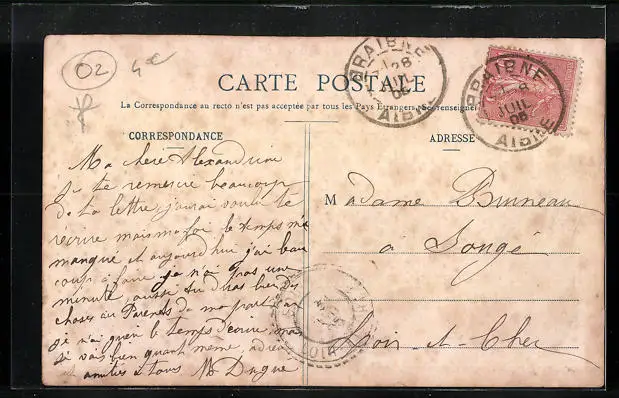 02
4e
CARTE POSTALE
La Correspondance au recto n'est pas acceptée par tous les Pays Étrangers. Se renseigner
CORRESPONDANCE
Ma chère Alexandrine
je te remercie beaucoup
de ta lettre, j'aurai voulu te
récrire mais ma foi le temps m'a
manqué et aujourd'hui j'ai beau
coup à faire je n'ai pas une
minute, aussi tu diras bien des
choses aux Parents de ma part
je n'ai guère le temps d'écrire, mais
je vais bien quand même, adieu
et amitiés à tous M Dugué
ADRESSE
Madame Bruneau
à Songé
Loir-et-Cher
BRAISNE
28
JUIL
05
AISNE
BRAISNE
JUIL
05
AISNE